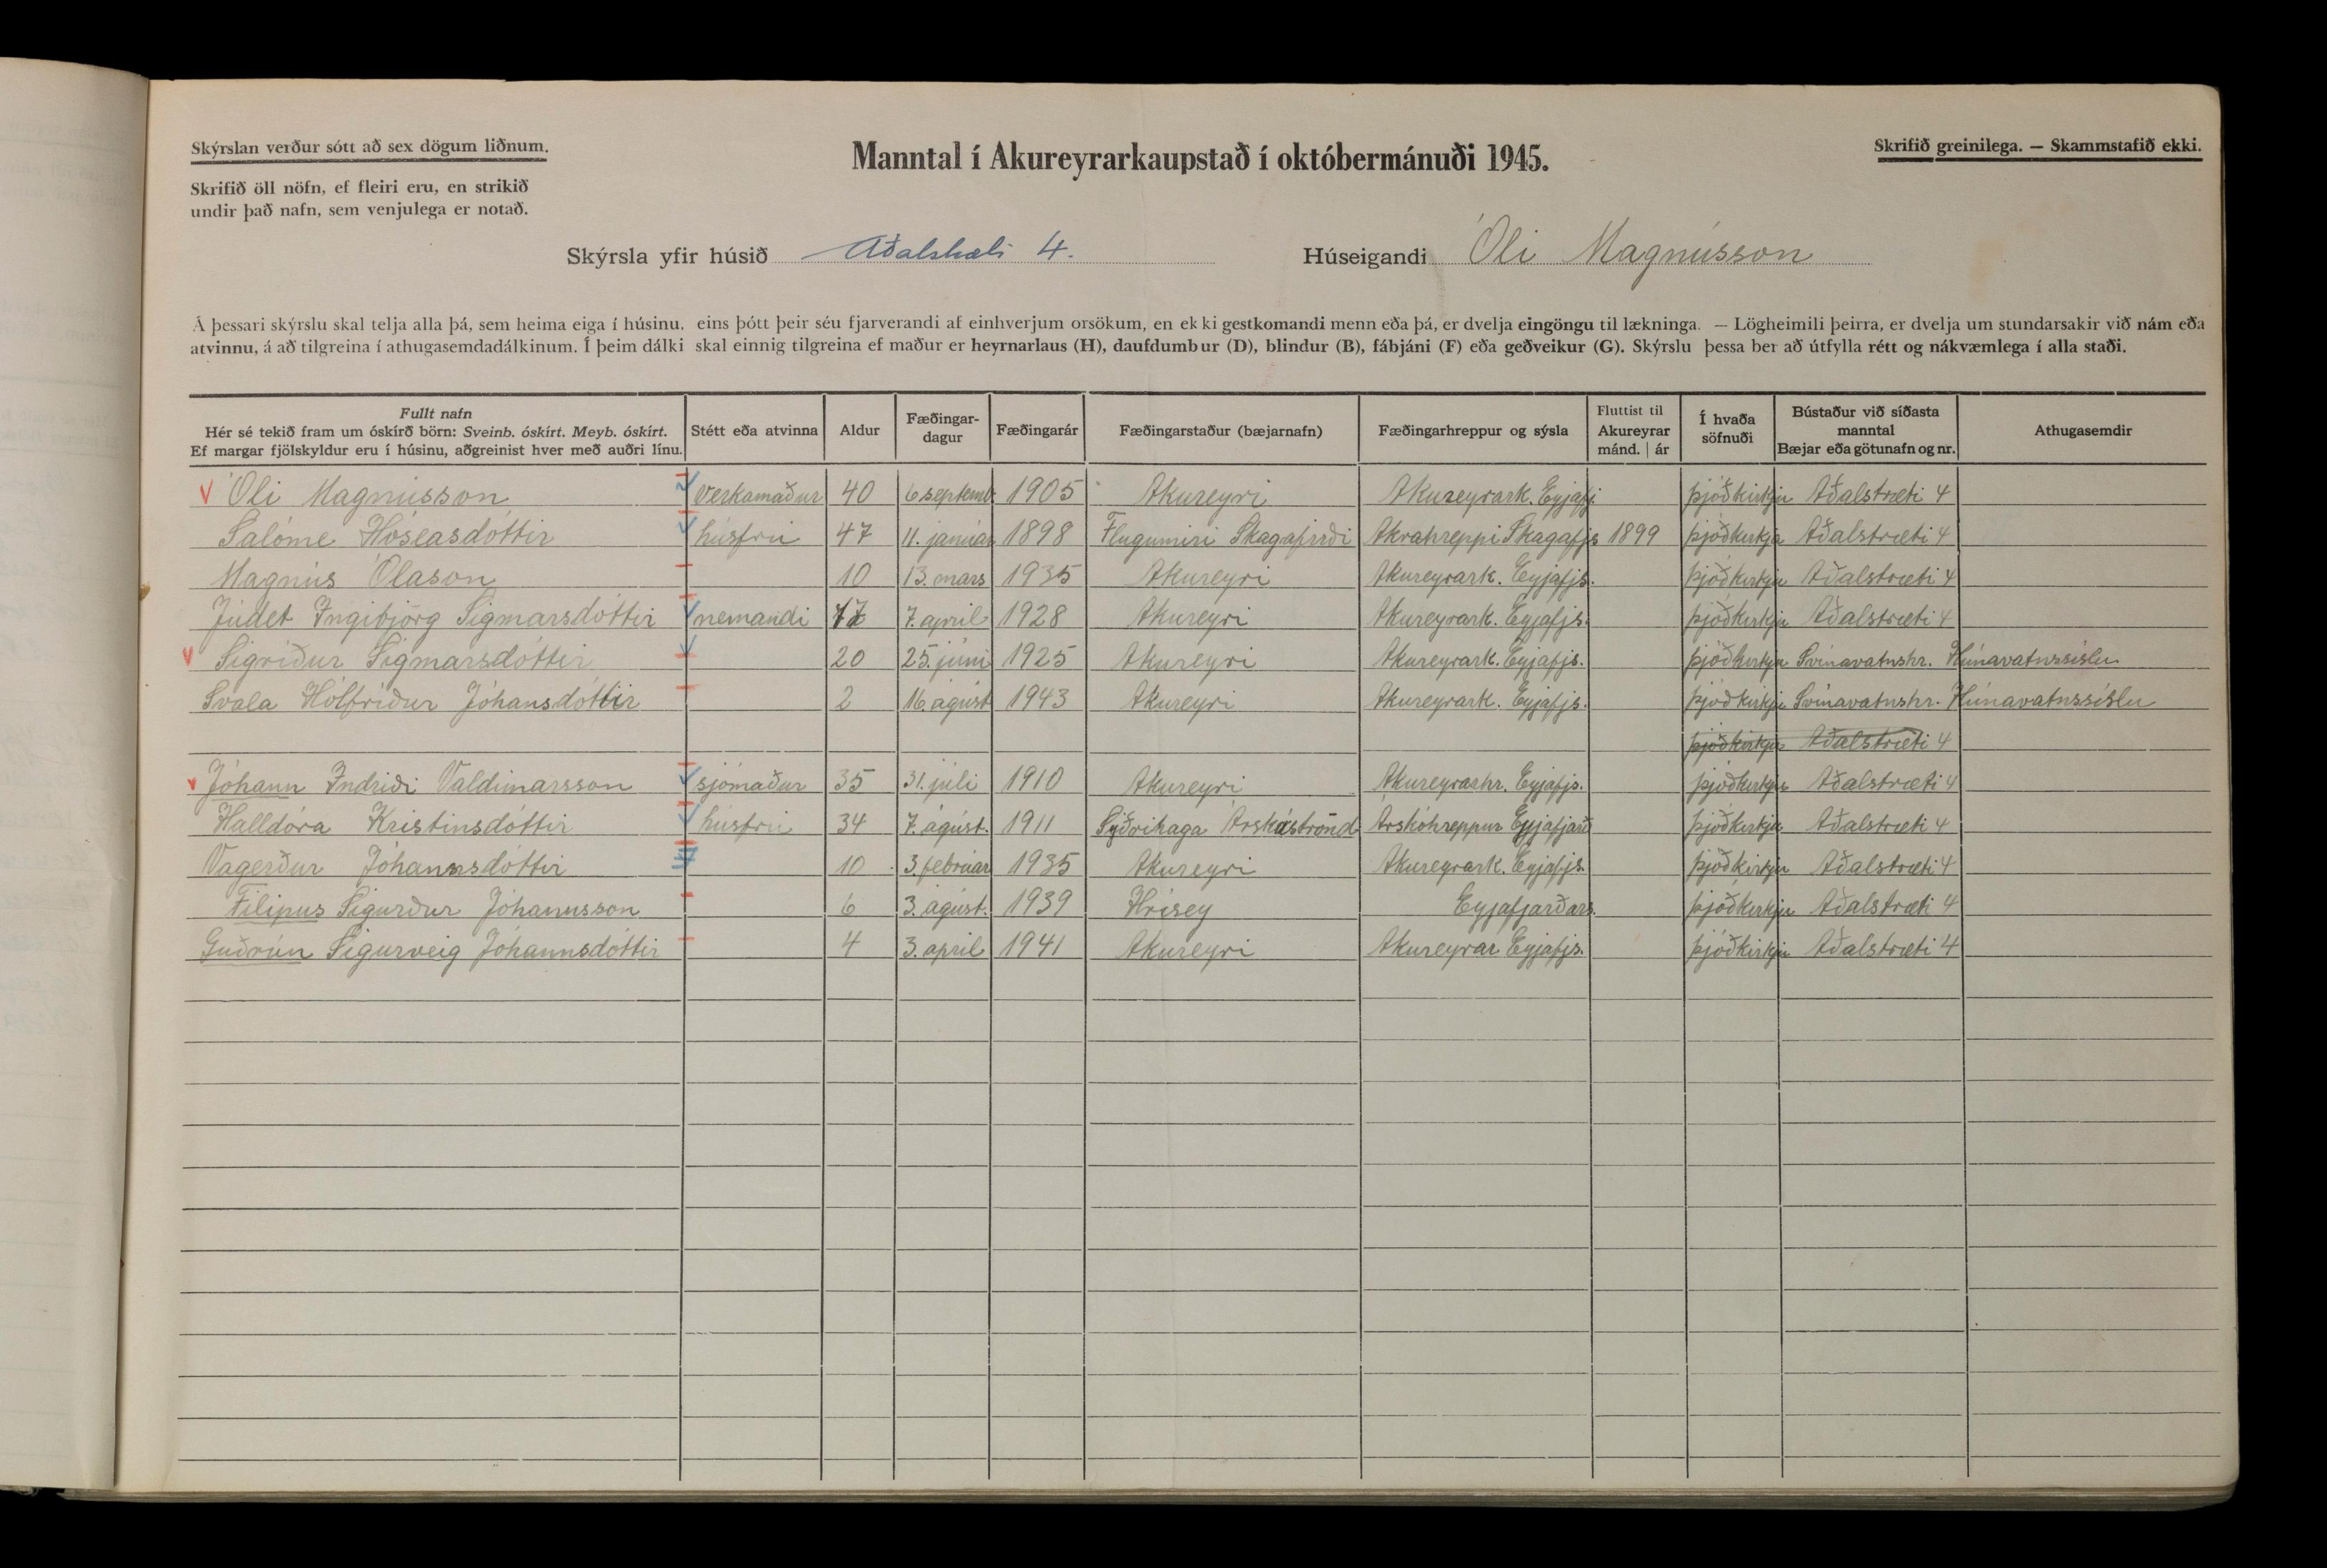 Skýrslan verður sótt að sex dögum liðnum.
Manntal í Akureyrarkaupstað í októbermánuði 1945.
Skrifið greinilega. — Skammstafið ekki.
Skrifið öll nöfn, ef fleiri eru, en strikið
undir það nafn, sem venjulega er notað.
Skýrsla yfir húsið Aðalstræti 4. Húseigandi Óli Magnússon
Á þessari skýrslu skal telja alla þá, sem heima eiga í húsinu, eins þótt þeir séu fjarverandi af einhverjum orsökum, en ekki gestkomandi menn eða þá, er dvelja eingöngu til lækninga. — Lögheimili þeirra, er dvelja um stundarsakir við nám eða
atvinnu, á að tilgreina í athugasemdadálkinum. Í þeim dálki skal einnig tilgreina ef maður er heyrnarlaus (H), daufdumbur (D), blindur (B), fábjáni (F) eða geðveikur (G). Skýrslu þessa ber að útfylla rétt og nákvæmlega í alla staði.
Fullt nafn
Hér sé tekið fram um óskírð börn: Sveinb. óskírt. Meyb. óskírt.
Ef margar fjölskyldur eru í húsinu, aðgreinist hver með auðri línu.
Stétt eða atvinna
Aldur
Fæðingar-
dagur
Fæðingarár
Fæðingarstaður (bæjarnafn)
Fæðingarhreppur og sýsla
Fluttist til
Akureyrar
mánd. | ár
Í hvaða
söfnuði
Bústaður við síðasta
manntal
Bæjar eða götunafn og nr.
Athugasemdir
Óli Magnússon verkamaður 40 6 septemb. 1905 Akureyri Akureyrark. Eyjafj. þjóðkirkju Aðalstræti 4
Salóme Hóseasdóttir húsfrú 47 11. janúar 1898 Flugumiri Skagafirði Akrahreppi Skagafjs 1899 þjóðkirkja Aðalstræti 4
Magnús Ólason 10 13. mars 1935 Akureyri Akureyrark. Eyjafjs. þjóðkirkju Aðalstræti 4
Júdet Ingibjörg Sigmarsdóttir nemandi 17 7. apríl 1928 Akureyri Akureyrark. Eyjafjs. þjóðkirkju Aðalstræti 4
Sigríður Sigmarsdóttir 20 25. júní 1925 Akureyri Akureyrark. Eyjafjs. þjóðkirkju Svínavatnshr. Húnavatnssíslu
Svala Hólfríður Jóhansdóttir 2 16. ágúst 1943 Akureyri Akureyrark. Eyjafjs. þjóðkirkju Svínavatnshr. Húnavatnssíslu
þjóðkirkju Aðalstræti 4
Jóhann Indriði Valdimarsson sjómaður 35 31. júlí 1910 Akureyri Akureyrarhr. Eyjafjs. þjóðkirkju Aðalstræti 4
Halldóra Kristinsdóttir húsfrú 34 7. ágúst. 1911 Syðrihaga Árskástrond Árskóhreppur Eyjafjarð þjóðkirkja Aðalstræti 4
Vagerður Jóhannsdóttir 10 3. februar 1935 Akureyri Akureyrark. Eyjafjs. þjóðkirkju Aðalstræti 4
Filipus Sigurður Jóhannsson 6 3. ágúst. 1939 Hrísey Eyjafjarðars. þjóðkirkju Aðalstræti 4
Guðrún Sigurveig Jóhannsdóttir 4 3. apríl 1941 Akureyri Akureyrar Eyjafjs. þjóðkirkju Aðalstræti 4